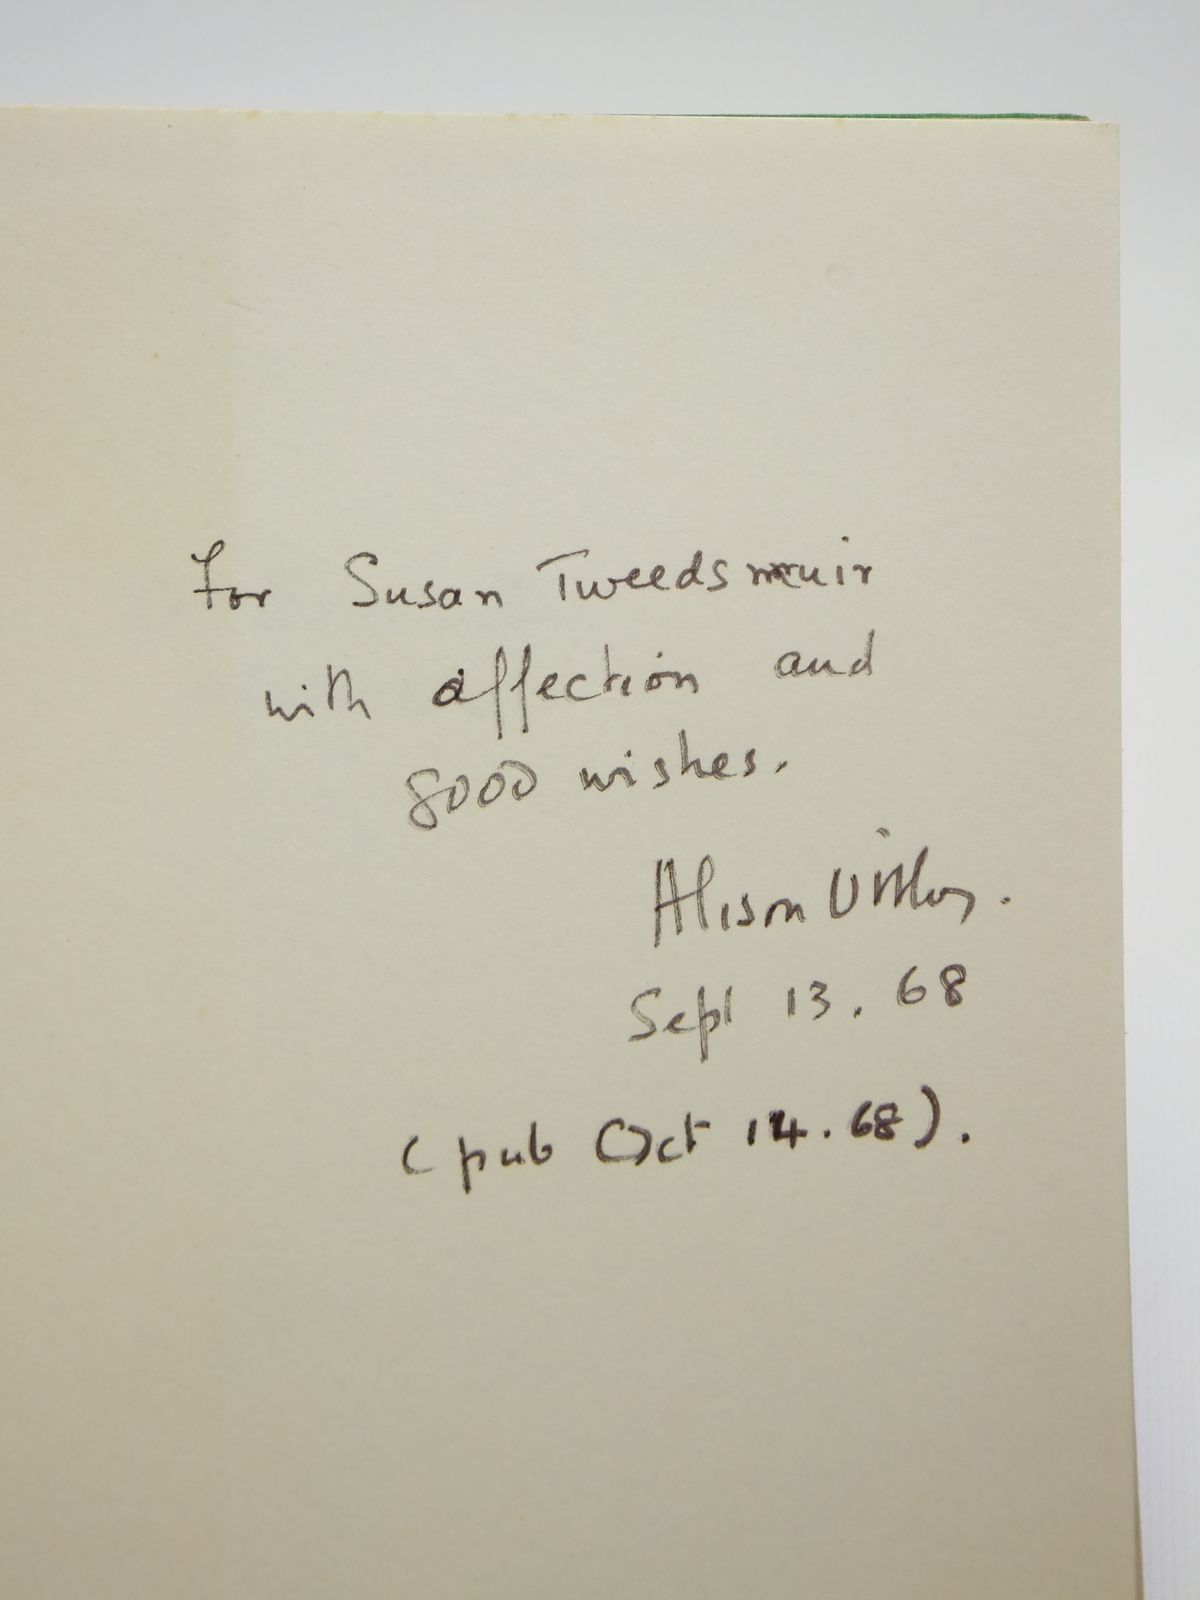 For Susan Tweedsmuir
with affection and
good wishes.
Alison Uttley.
Sept 13. 68
(pub Oct 14. 68).